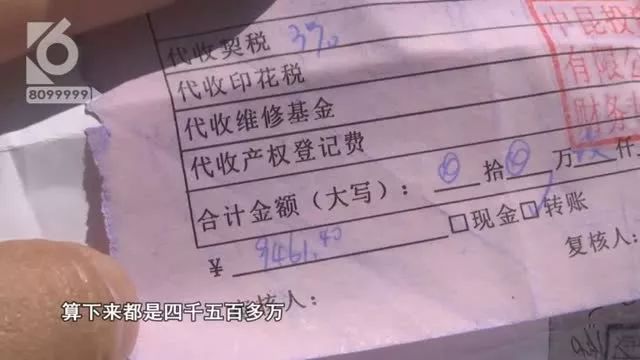 6
8099999
代收契税 3%
代收印花税
代收维修基金
代收产权登记费
合计金额（大写）： 拾 万 仟
¥ 9461.40 □现金 ☑转账
复核人：
核人：
中昆投
有限公
财务
算下来都是四千五百多方